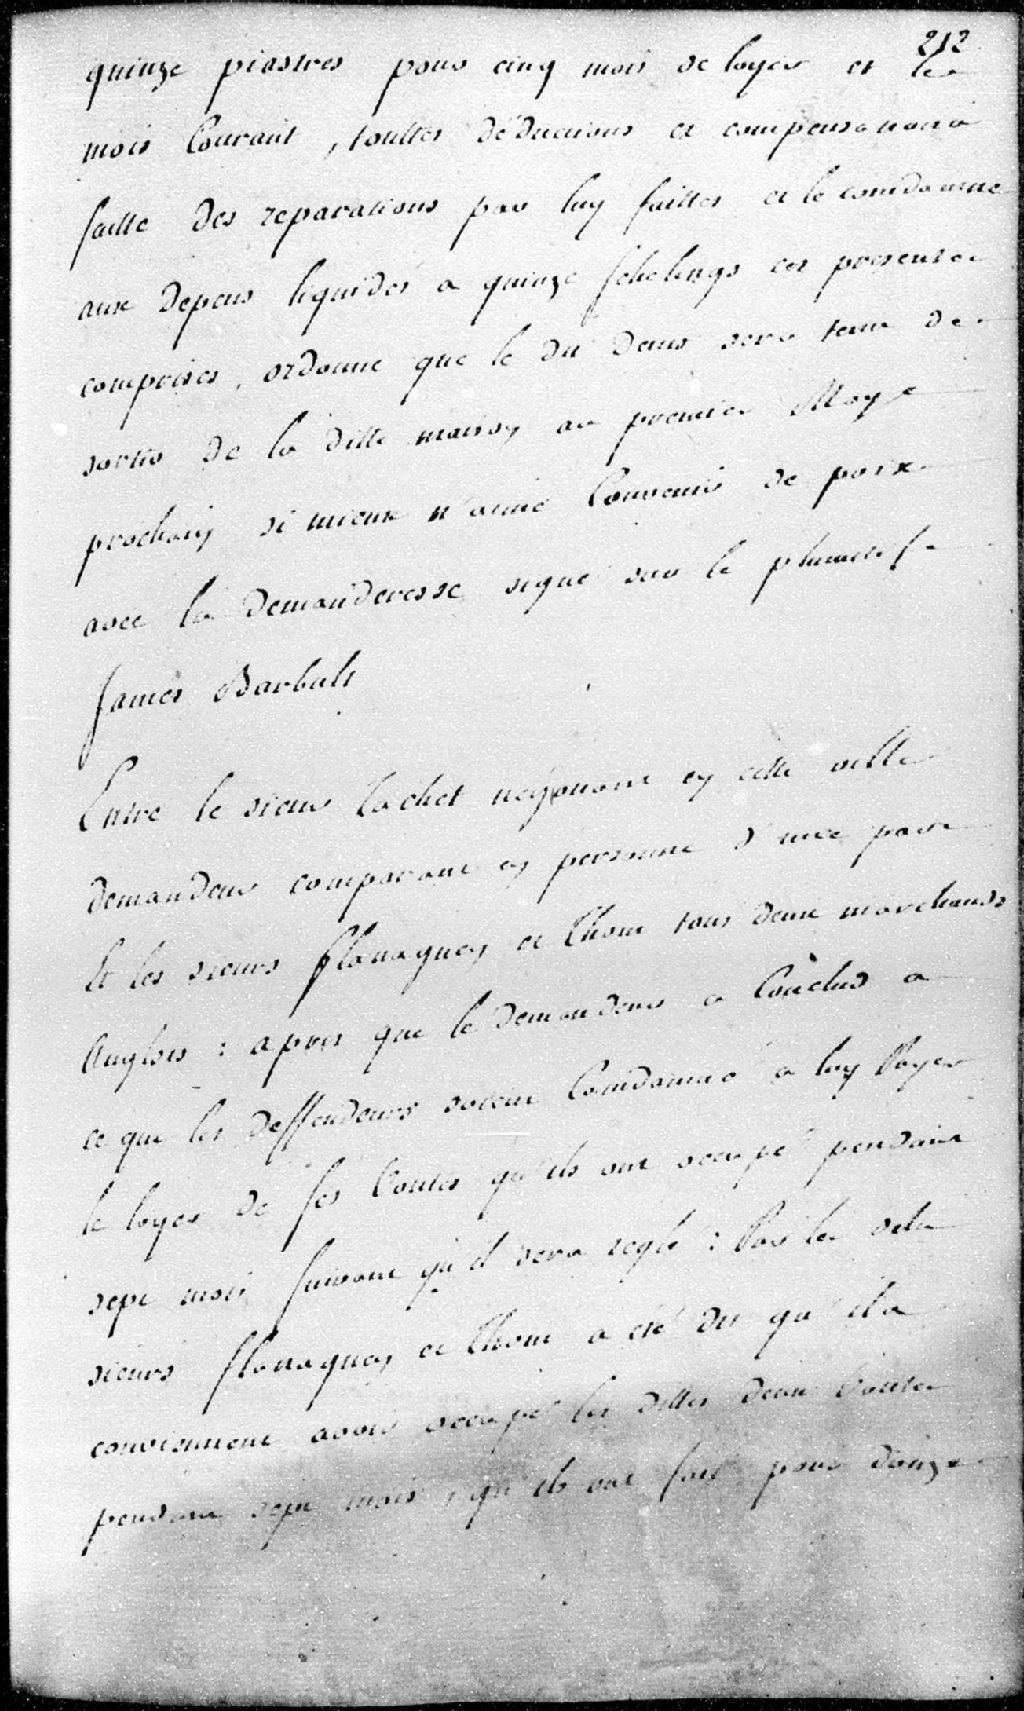 212
quinze piastres pour cinq mois de loyer et le
mois Courant, touttes déductions et compensations
faitte des reparations par luy faittes et le condamne
aux depens liquidés a quinze schelings ces presentes
comprises, ordonne que le dit Deux sera tenu de
sortir de la ditte maison au premier May
prochain si mieux n'aime Convenir de prix
avec la demanderesse signé sur le plumitif
James Barbutt
Entre le sieur Cachet negotiant en cette ville
demandeur comparant en personne d'une part
Et les sieurs flanaguen et Thom tous deux marchands
Anglois : apres que le demandeur a Conclud a
ce que les deffendeurs soient Condamné a luy Payer
le loyer de ses Voutes qu'ils ont occupé pendant
sept mois suivant qu'il sera reglé : Par les dits
sieurs flanaguen et Thom a eté dit qu'ils
conviennent avoir occupé les dittes deux voutes
pendant sept mois, qu'ils ont fait pour douze